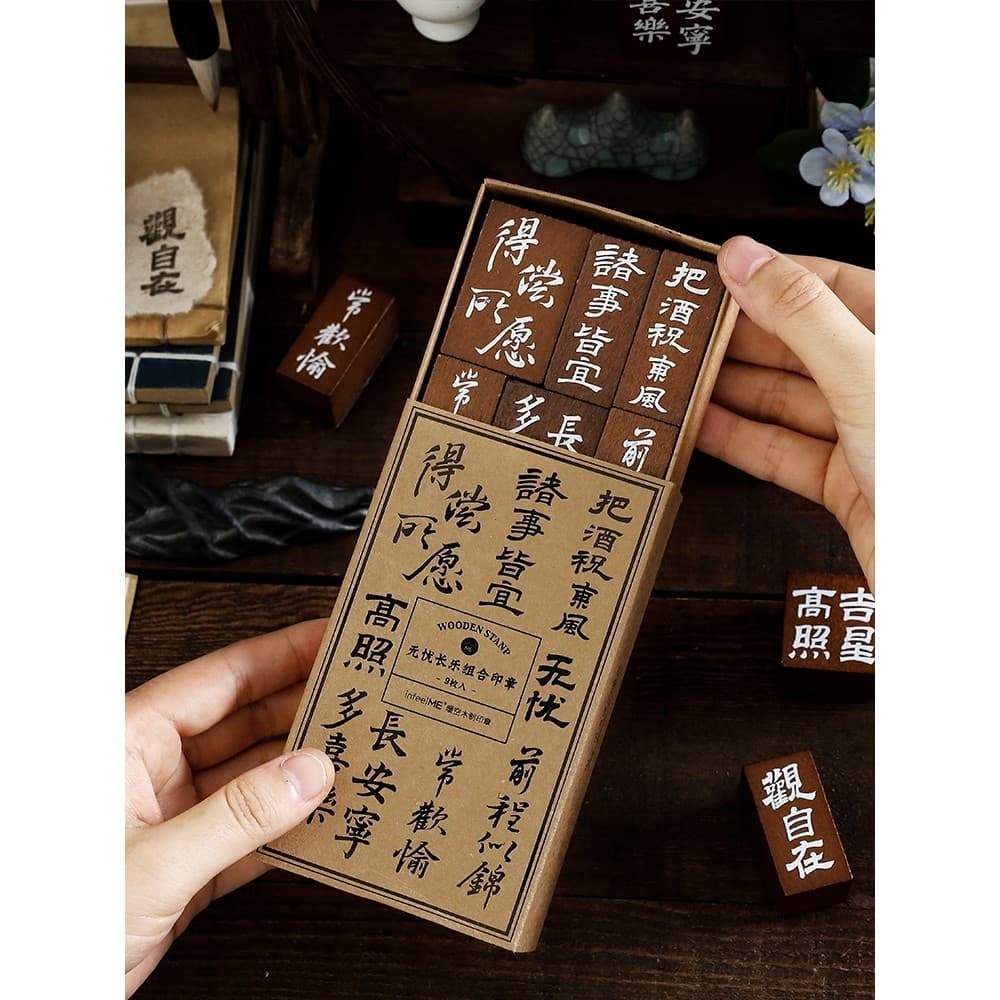 安寧
喜樂
觀自在
常歡愉
得償所愿
諸事皆宜
把酒祝東風
常
多
長
前
得償所愿
諸事皆宜
把酒祝東風
高照
WOODEN STAMP
无忧长乐组合印章
- 9枚入 -
infeelME
木制印章
无忧
長安寧
多喜樂
常歡愉
前程似錦
吉星
高照
觀自在